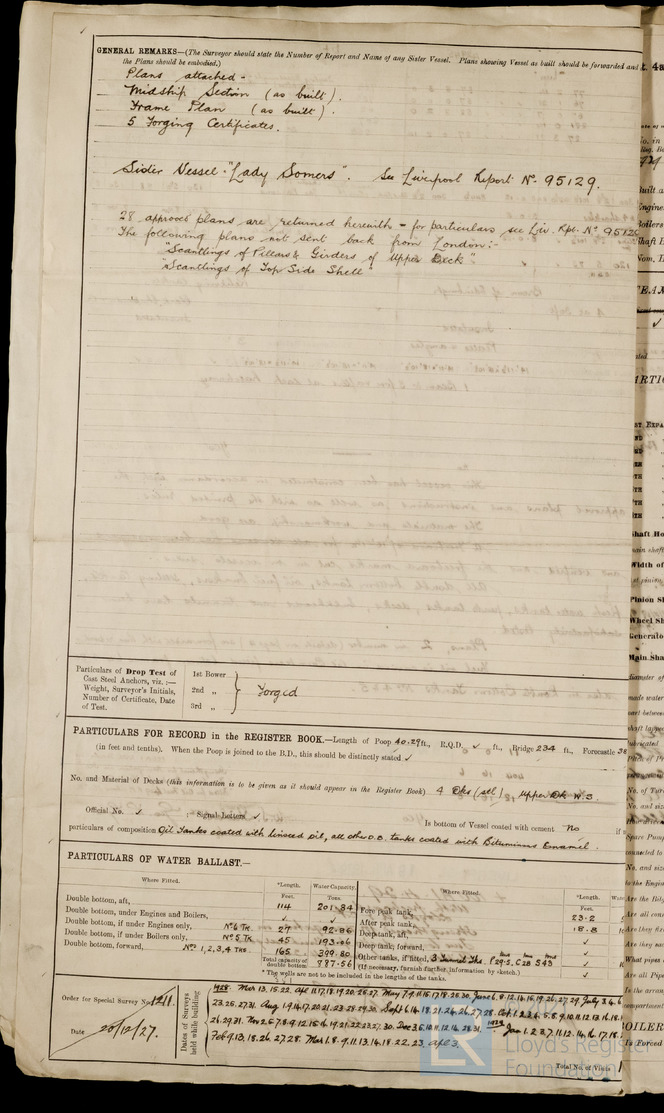 GENERAL REMARKS—(The Surveyor should state the Number of Report and Name of any Sister Vessel. Plans showing Vessel as built should be forwarded and
the Plans should be embodied.)
Plans attached -
Midship Section (as built).
Frame Plan (as built).
5 Forging Certificates.
Sister Vessel "Lady Somers". See Liverpool Report No. 95129.
28 approved plans are returned herewith - for particulars see Liv. Rpt. No 95129
The following plans not sent back from London:-
"Scantlings of Pillars & Girders of Upper Deck"
"Scantlings of Top Side Shell"
Particulars of Drop Test of
Cast Steel Anchors, viz.:—
Weight, Surveyor's Initials,
Number of Certificate, Date
of Test.
1st Bower
2nd „
3rd „
Forged
PARTICULARS FOR RECORD in the REGISTER BOOK.—Length of Poop 40.29 ft., R.Q.D. ✓ ft., Bridge 234 ft., Forecastle 38
(in feet and tenths). When the Poop is joined to the B.D., this should be distinctly stated ✓
No. and Material of Decks (this information is to be given as it should appear in the Register Book) 4 Dks (stl), Upper Dk W.S.
Official No. ✓ ; Signal Letters ✓ Is bottom of Vessel coated with cement No if
particulars of composition Oil Tanks coated with linseed oil, all other D.B. tanks coated with Bituminous Enamel.
PARTICULARS OF WATER BALLAST.—
Where Fitted. *Length. Water Capacity. Where Fitted. *Length.
Feet. Tons. Feet.
Double bottom, aft, 114 201.84 Fore peak tank, 23.2
Double bottom, under Engines and Boilers, ✓ ✓ After peak tank, 18.8
Double bottom, if under Engines only, No 6 Tk. 27 92.86 Deep tank, aft, ✓
Double bottom, if under Boilers only, No 5 Tk. 45 193.06 Deep tank, forward, ✓
Double bottom, forward, Nos 1, 2, 3, 4 Tks. 165 399.80 Other tanks, if fitted, 3 Tunnel Tks. P 29.5, C 28 S 43 ✓
Total capacity of double bottom 887.56 (If necessary, furnish further information by sketch.)
* The wells are not to be included in the lengths of the tanks.
Order for Special Survey No. 1211.
Date 20/12/27.
Dates of Surveys
held while building
1928. Mar 13, 15, 22. Apl 11, 17, 18, 19, 20, 26, 27. May 7, 9, 11, 15, 17, 18, 25, 30. June 6, 8, 12, 14, 15, 19, 26, 27, 29. July 3, 4, 6
23, 25, 27, 31. Aug 1, 9, 14, 17, 20, 21, 23, 28, 29, 30. Sept 6, 14, 18, 21, 24, 26, 27, 28. Oct 1, 2, 3, 4, 5, 8, 9, 10, 11, 12, 13, 16, 18
26, 29, 31. Nov 2, 6, 7, 8, 9, 12, 15, 16, 19, 21, 22, 23, 27, 30. Dec 3, 6, 10, 11, 12, 14, 28, 31. 1929 Jan 1, 2, 3, 7, 11, 12, 14, 16, 17, 18
Feb 9, 13, 18, 26, 27, 28. Mar 1, 8, 9, 11, 13, 14, 18, 22, 23. Apl 3.
Total No. of Visits
LR Lloyd's Register
Foundation